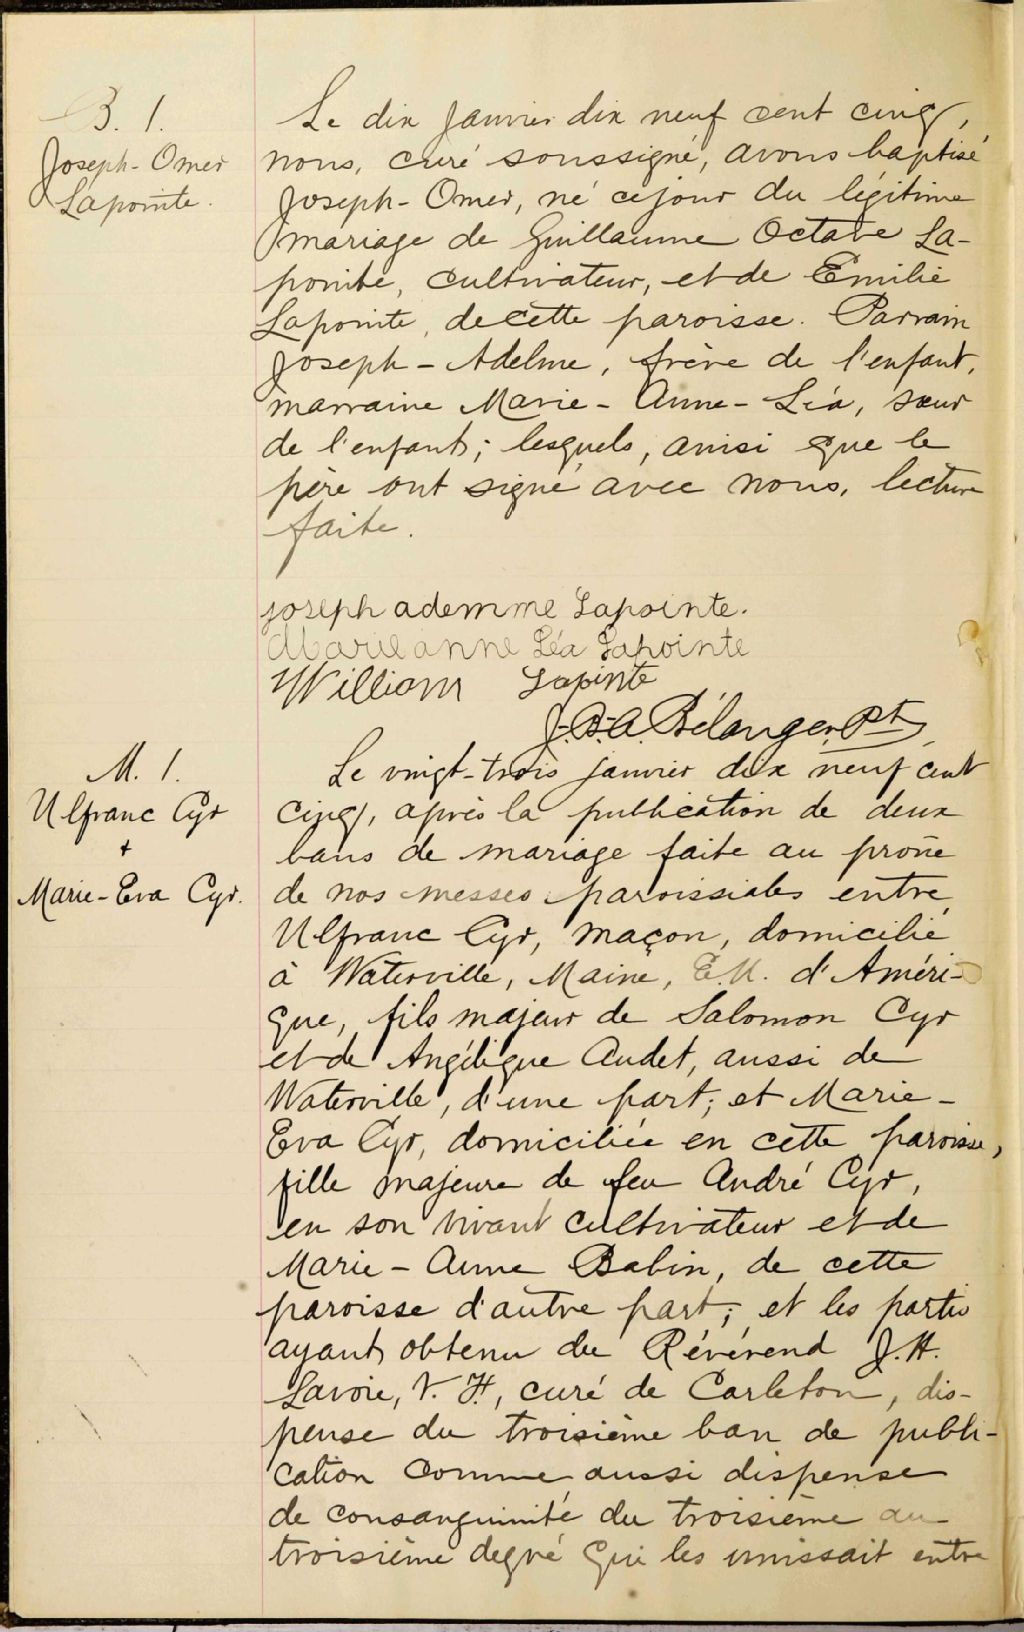 B. 1.
Joseph-Omer
Lapointe.
Le dix janvier dix neuf cent cinq,
nous, curé soussigné, avons baptisé
Joseph-Omer, né ce jour du légitime
mariage de Guillaume Octave La-
pointe, cultivateur, et de Emilie
Lapointe, de cette paroisse. Parrain
Joseph-Adelme, frère de l'enfant,
marraine Marie-Anne-Léa, sœur
de l'enfant; lesquels, ainsi que le
père ont signé avec nous, lecture
faite.
joseph ademme Lapointe.
Marie anne Léa Lapointe
William Lapointe
J.-B.-A. Bélanger Pt
M. 1.
Ulfranc Cyr
+
Marie-Eva Cyr.
Le vingt-trois janvier dix neuf cent
cinq, après la publication de deux
bans de mariage faite au prône
de nos messes paroissiales entre
Ulfranc Cyr, maçon, domicilié
à Waterville, Maine, E.U. d'Améri-
que, fils majeur de Salomon Cyr
et de Angélique Audet, aussi de
Waterville, d'une part; et Marie-
Eva Cyr, domiciliée en cette paroisse,
fille majeure de feu André Cyr,
en son vivant cultivateur et de
Marie-Anne Babin, de cette
paroisse d'autre part; et les parties
ayant obtenu du Révérend J.H.
Lavoie, V. F., curé de Carleton, dis-
pense du troisième ban de publi-
cation comme aussi dispense
de consanguinité du troisième au
troisième degré qui les unissait entre